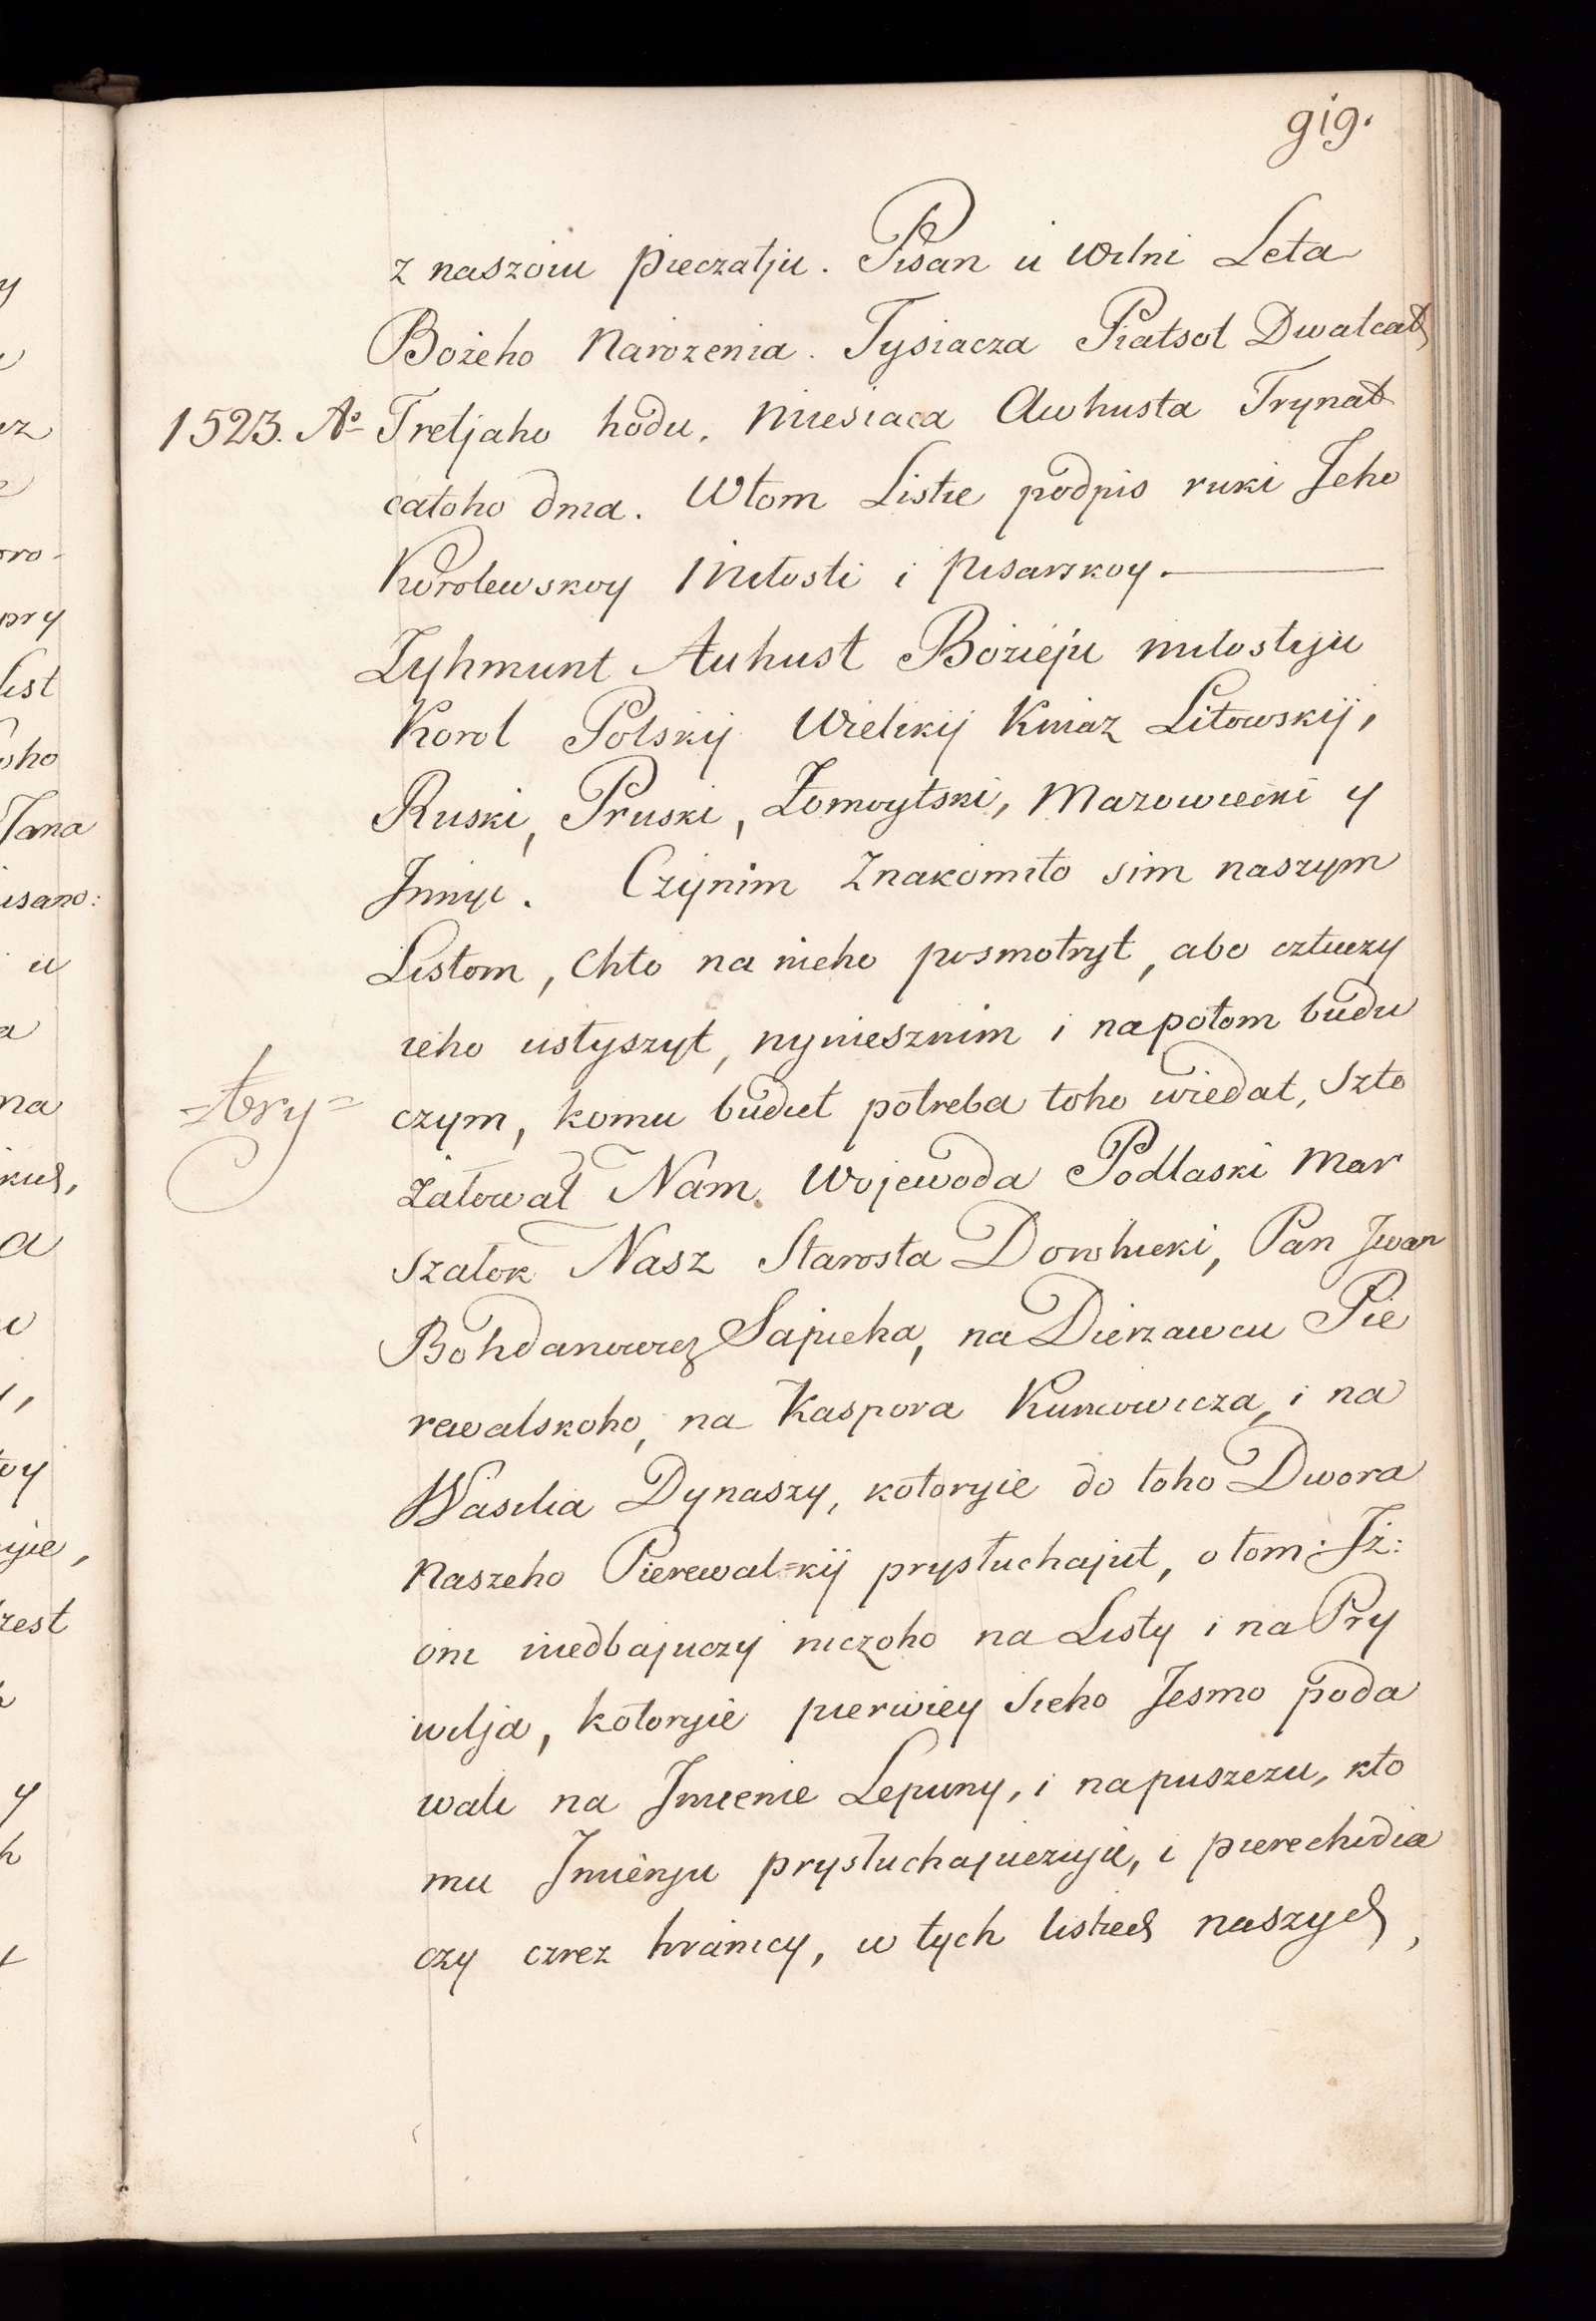 919.
z naszoiu pieczatju. Pisan u Wilni Leta
Bożeho Narozenia. Tysiacza Piatsot Dwatcat
1523. Aº Tretjaho hodu, Miesiaca Awhusta Trynat
catoho dnia. W tom Listie podpis ruki Jeho
Korolewskoy Miłosti i pisarskoy.
Zyhmunt Auhust Bożieju miłostiju
Korol Polskij Wielikij Kniaz Litowskij,
Ruski, Pruski, Żomoytski, Mazowiecki y
Innyi. Czynim Znakomito sim naszym
Listom, chto na nieho posmotryt, abo cztuczy
ieho usłyszyt, nynieszniм i napotom budu
=try= czym, komu budiet potreba toho wiedat, szto
żałował Nam Wojewoda Podlaski Mar
szałok Nasz Starosta Dorohicki, Pan Iwan
Bohdanowicz Sapieha, na Dierżawcu Pie
rewalskoho, na Kaspora Kuncowicza, i na
Wasilia Dynaszy, kotoryie do toho Dwora
Naszeho Pierewal=kij prysłuchajut, o tom: Iż:
oni niedbajuczy niczoho na Listy i na Pry
wilja, kotoryie pierwiey sieho Jesmo poda
wali na Imienie Lepuny, i na puszczu, kto
mu Imienju prysłuchajuczuju, i pierechidia
czy czrez hranicy, w tych listiech naszych,